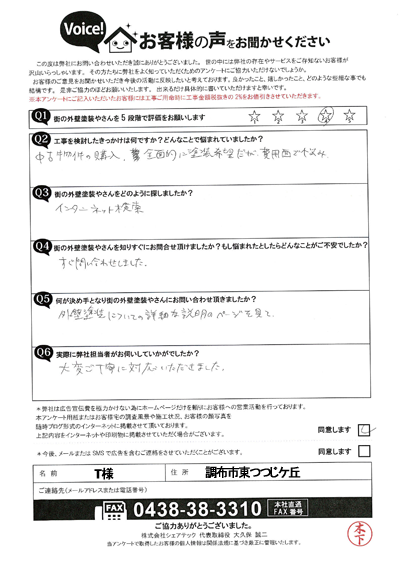 Voice!
お客様の声をお聞かせください
この度は弊社にお問い合わせいただき誠にありがとうございました。世の中には弊社の存在やサービスをご存知ないお客様が
沢山いらっしゃいます。その方たちに弊社をよく知っていただくためのアンケートにご協力いただけないでしょうか。
お客様のご意見をお聞かせいただき今後の活動に反映したいと考えております。良かったこと、嬉しかったこと、どのような些細な事でも
結構です。是非ご協力のほどお願いいたします。出来るだけ具体的に書いていただけますと幸いです。
※本アンケートにご記入いただいたお客様には工事ご用命時に工事金額税抜きの2%をお値引きさせていただきます。
Q1 街の外壁塗装やさんを5段階で評価をお願いします
Q2 工事を検討したきっかけは何ですか?どんなことで悩まれていましたか?
中古物件の購入、全面的に塗装希望だが、費用面で悩み
Q3 街の外壁塗装やさんをどのように探しましたか?
インターネット検索
Q4 街の外壁塗装やさんを知りすぐにお問合せ頂けましたか?もし悩まれたとしたらどんなことがご不安でしたか?
すぐ問い合わせしました。
Q5 何が決め手となり街の外壁塗装やさんにお問い合わせ頂きましたか?
外壁塗装についての詳細な説明のページを見て
Q6 実際に弊社担当者がお伺いしていかがでしたか?
大変ご丁寧に対応いただきました。
*弊社は広告宣伝費を極力かけない為にホームページだけを頼りにお客様への営業活動を行っております。
本アンケート用紙またはお客様宅の調査風景や施工状況、お客様の顔写真を
随時ブログ形式のインターネットに掲載させて頂いております。
上記内容をインターネットや印刷物に掲載させていただく場合がございます。
同意します
*今後、メールまたはSMSで広告を含むご連絡をさせていただくことがございます。
同意します
名前 T様 住所 調布市東つつじケ丘
ご連絡先(メールアドレスまたは電話番号)
FAX 0438-38-3310 本社直通 FAX番号
ご協力ありがとうございました。
株式会社シェアテック 代表取締役 大久保 誠二
当アンケートで取得したお客様の個人情報は関係法規に基づき厳正に管理いたします。
木下